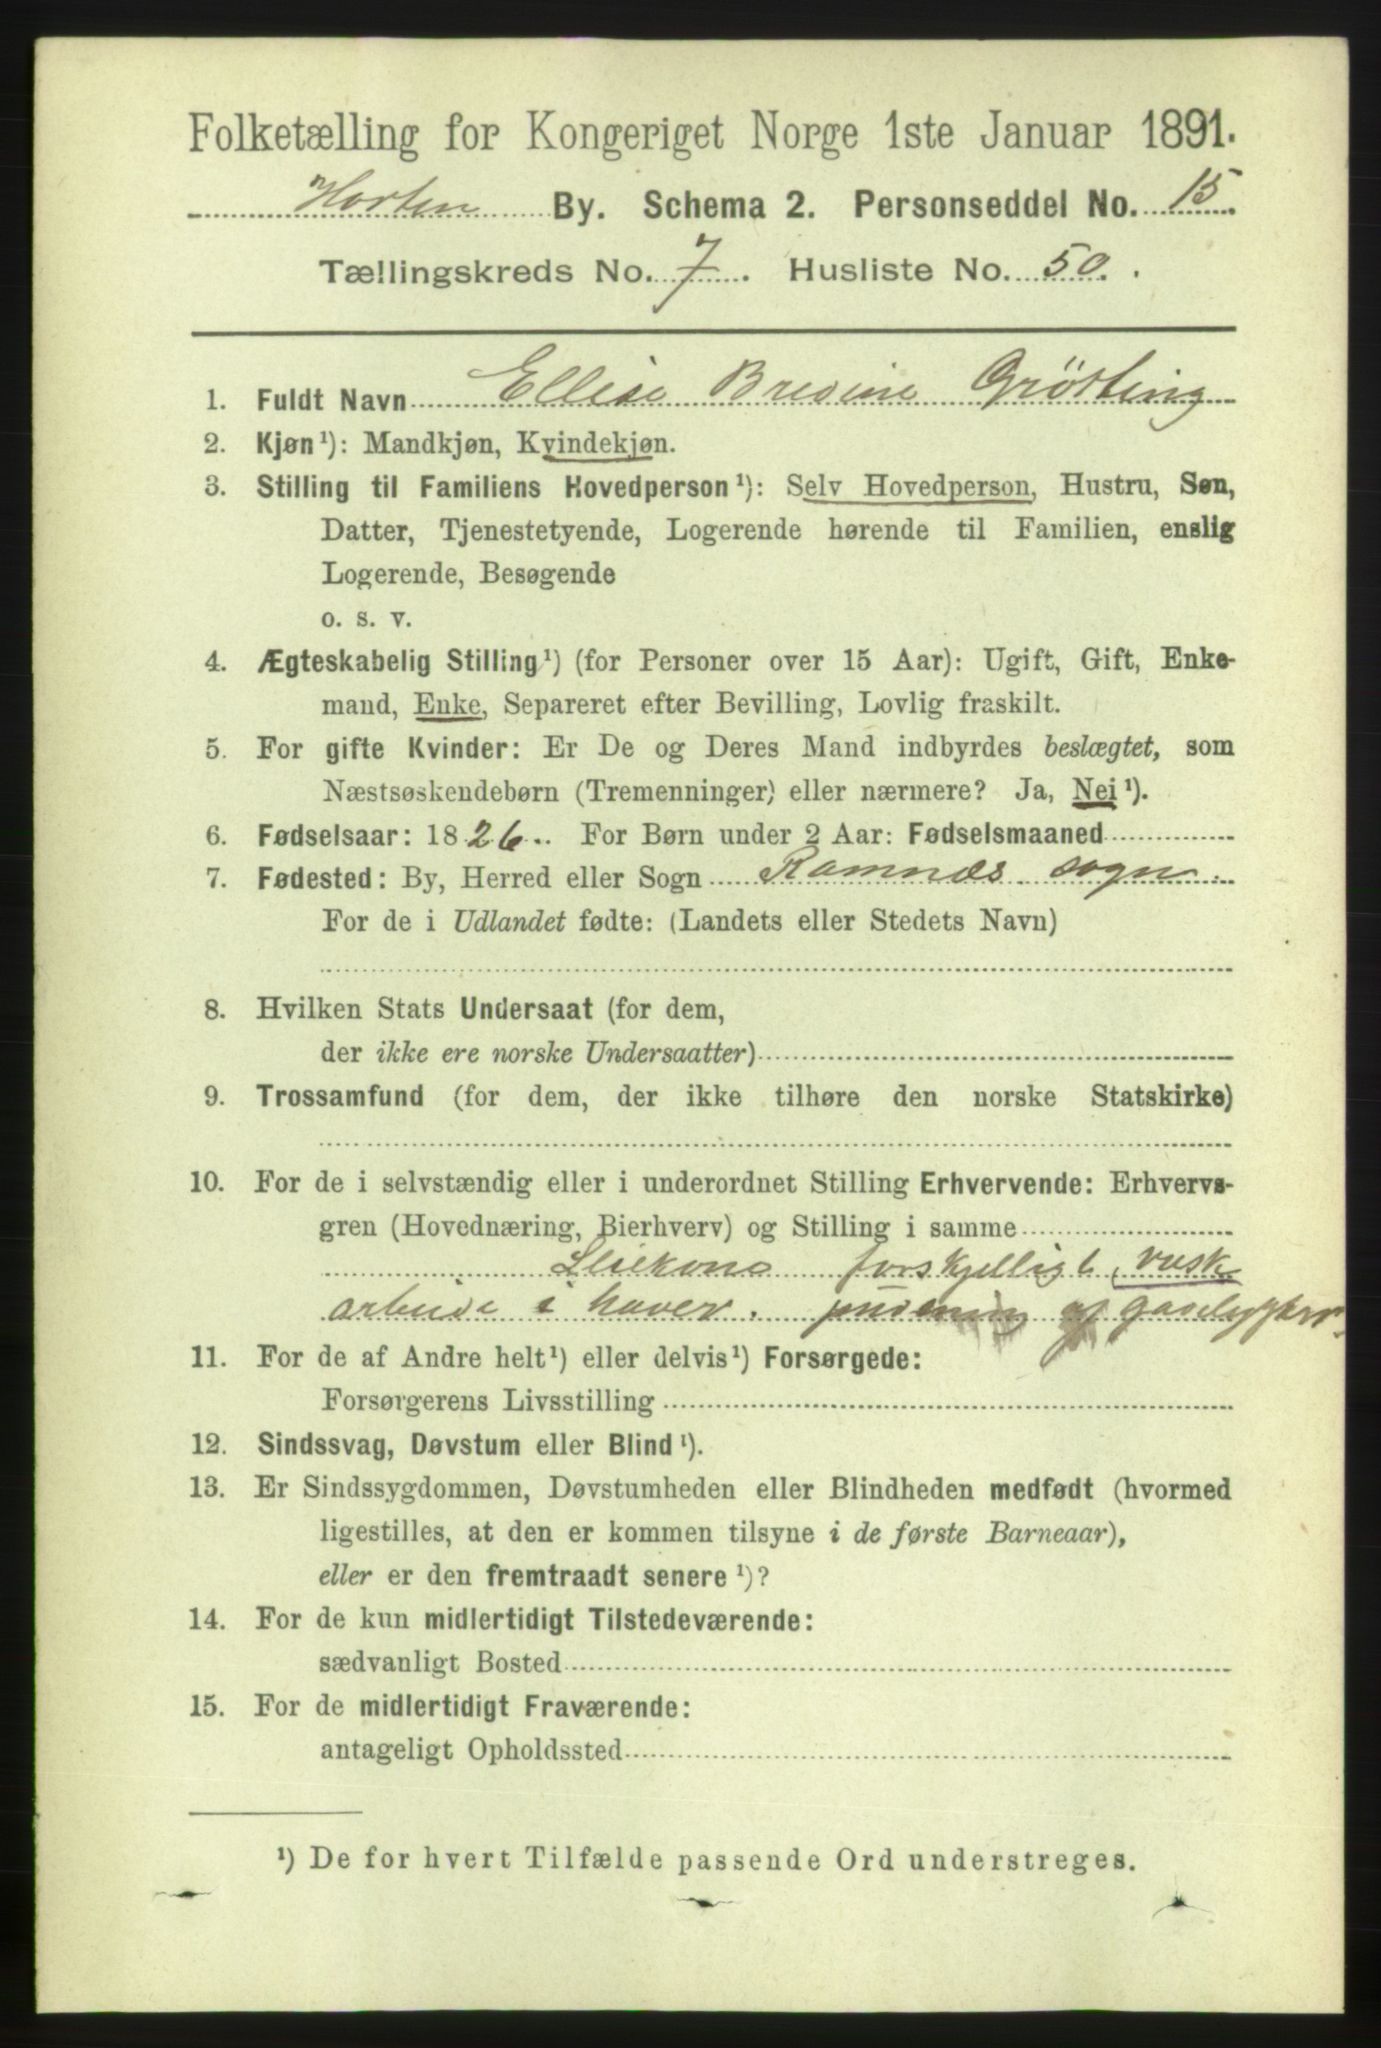 Folketælling for Kongeriget Norge 1ste Januar 1891.
Horten By. Schema 2. Personseddel No. 15.
Tællingskreds No. 7. Husliste No. 50.
1. Fuldt Navn Ellise Bredine Grösting
2. Kjøn¹): Mandkjøn, Kvindekjøn.
3. Stilling til Familiens Hovedperson¹): Selv Hovedperson, Hustru, Søn,
Datter, Tjenestetyende, Logerende hørende til Familien, enslig
Logerende, Besøgende
o. s. v.
4. Ægteskabelig Stilling¹) (for Personer over 15 Aar): Ugift, Gift, Enke-
mand, Enke, Separeret efter Bevilling, Lovlig fraskilt.
5. For gifte Kvinder: Er De og Deres Mand indbyrdes beslægtet, som
Næstsøskendebørn (Tremenninger) eller nærmere? Ja, Nei¹).
6. Fødselsaar: 1826. For Børn under 2 Aar: Fødselsmaaned
7. Fødested: By, Herred eller Sogn Ramnæs sogn.
For de i Udlandet fødte: (Landets eller Stedets Navn)
8. Hvilken Stats Undersaat (for dem,
der ikke ere norske Undersaatter)
9. Trossamfund (for dem, der ikke tilhøre den norske Statskirke)
10. For de i selvstændig eller i underordnet Stilling Erhvervende: Erhvervs-
gren (Hovednæring, Bierhverv) og Stilling i samme
forskjelligt, vask
arbeide i haver. pudsning af gaselygter.
11. For de af Andre helt¹) eller delvis¹) Forsørgede:
Forsørgerens Livsstilling
12. Sindssvag, Døvstum eller Blind¹).
13. Er Sindssygdommen, Døvstumheden eller Blindheden medfødt (hvormed
ligestilles, at den er kommen tilsyne i de første Barneaar),
eller er den fremtraadt senere¹)?
14. For de kun midlertidigt Tilstedeværende:
sædvanligt Bosted
15. For de midlertidigt Fraværende:
antageligt Opholdssted
¹) De for hvert Tilfælde passende Ord understreges.